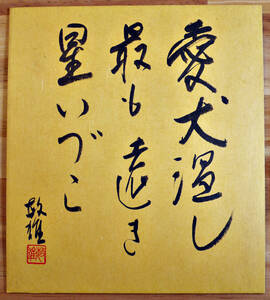 愛犬温し
最も遠き
星いづこ
敏雄